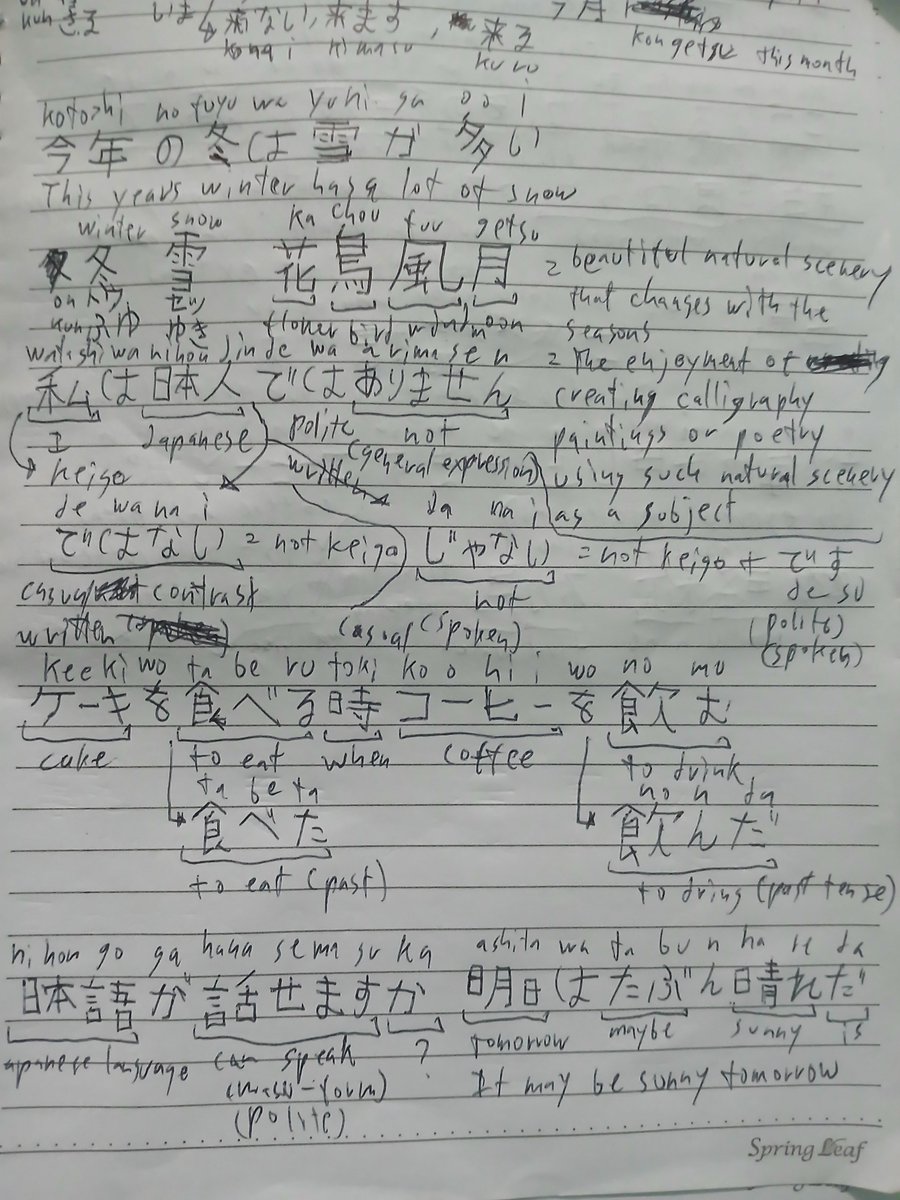 きる いま 来ない,来ます, 来る 月
kun konai kimasu kuru kongetsu this month
kotoshi no fuyu wa yuki ga oo i
今年の冬は雪が多い
This years winter has a lot of snow
winter snow ka chou fuu getsu
冬 雪 花鳥風月 = beautiful natural scenery
on トウ セツ that changes with the
kun ふゆ ゆき flower bird wind moon seasons
watashi wa nihon jin de wa arimasen = The enjoyment of
私は日本人ではありません creating calligraphy
I Japanese polite not paintings or poetry
keigo written (general expression) using such natural scenery
de wa na i ja na i as a subject
ではなし) = not keigo じゃなし) = not keigo + です
casual contrast not desu
written casual (spoken) (polite)
(spoken)
keeki wo ta be ru toki ko o hi i wo no mu
ケーキを食べる時コーヒーを飲む
cake to eat when coffee to drink
ta be ta no n da
食べた 飲んだ
to eat (past) to dring (past tense)
ni hon go ga hana se ma su ka ashita wa ta bu n ha re da
日本語が話せますか 明日はたぶん晴れだ
apanese language can speak ? tomorrow maybe sunny is
(masu-form) It may be sunny tomorrow
(polite)
Spring Leaf